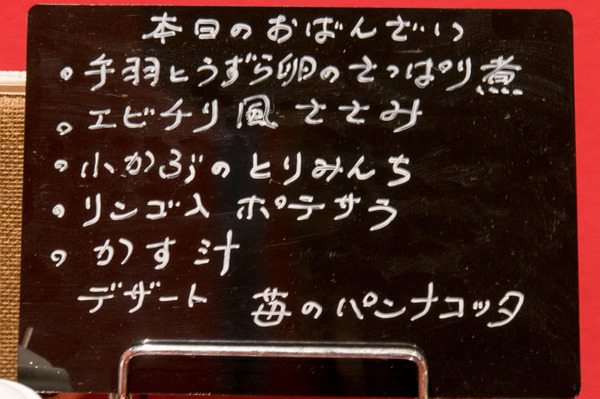 本日のおばんざい
・手羽とうずら卵のさっぱり煮
・エビチリ風ささみ
・小かぶのとりみんち
・リンゴ入ポテサラ
・かす汁
デザート 苺のパンナコッタ